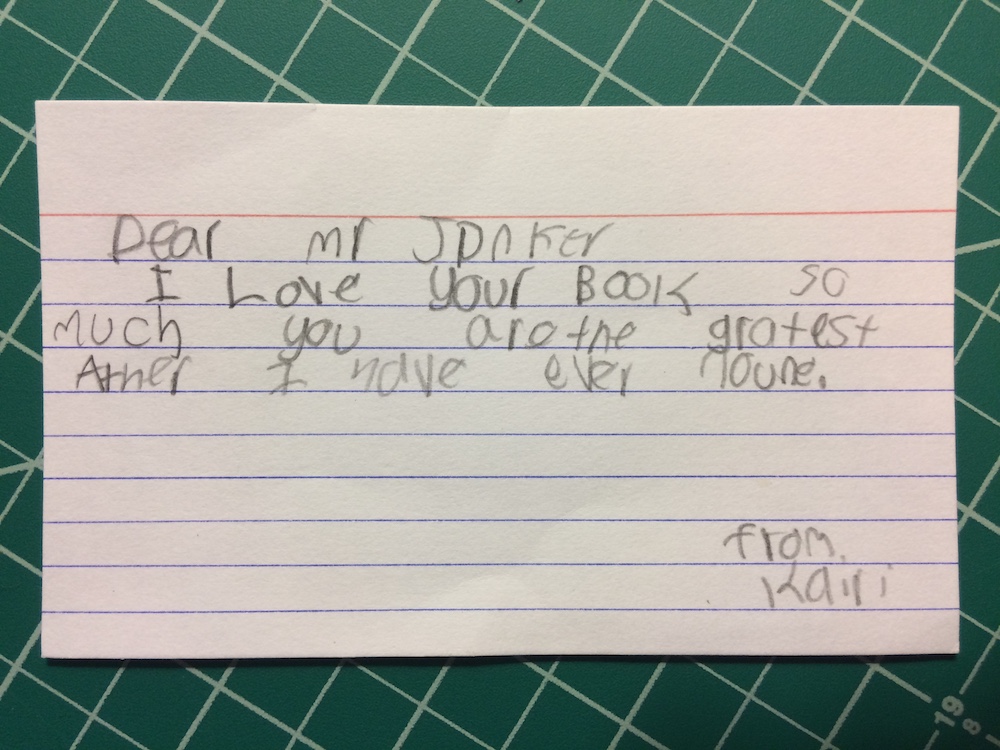 Dear mr Jonker
I Love your Book so
much you are the gratest
Ather I have ever noune.
from,
Kairi
19
8